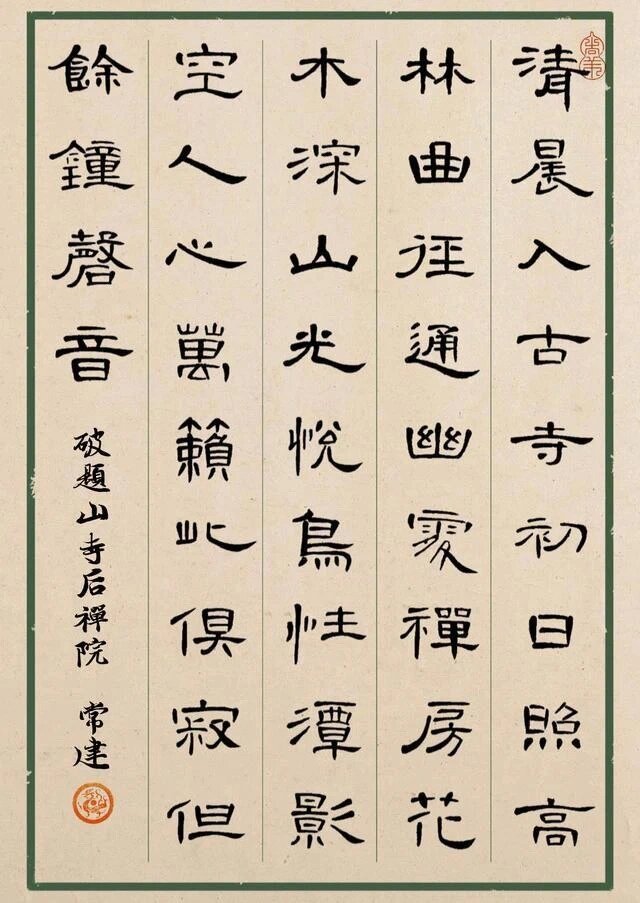 清晨入古寺初日照高
林曲徑通幽處禪房花
木深山光悅鳥性潭影
空人心萬籟此俱寂但
餘鐘磬音
破題山寺后禪院 常建